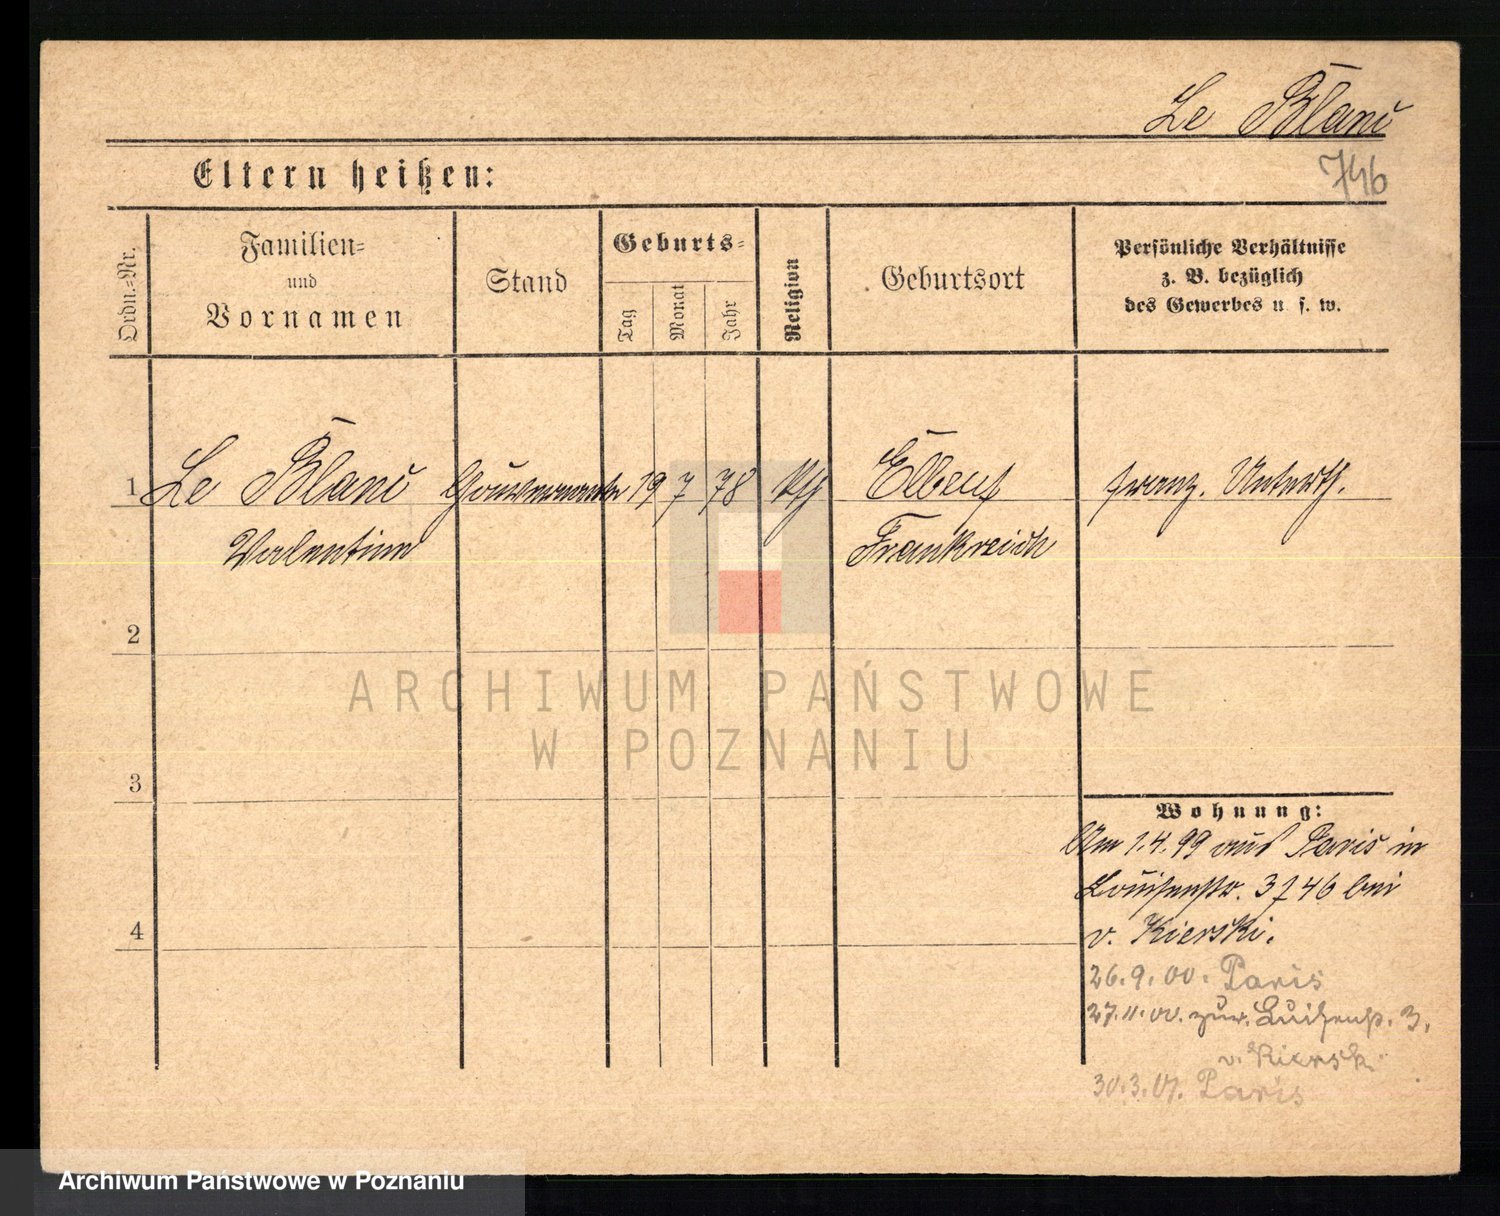 Le Blanc
746
Eltern heißen:
Ordn.-Nr.
Familien-
und
Vornamen
Stand
Geburts-
Tag
Monat
Jahr
Religion
Geburtsort
Persönliche Verhältnisse
z. B. bezüglich
des Gewerbes u. s. w.
1 Le Blanc Gouvernante 19 7 78 Elbeuf franz. Unterth.
Valentine Frankreich
2
3
4
Wohnung:
Am 1.4.99 aus Paris in
Louisenstr. 3 746 bei
v. Kierski.
26.9.00. Paris
27.11.00. zur. Luisenstr. 3.
v. Kierski
30.3.01. Paris
ARCHIWUM PAŃSTWOWE
W POZNANIU
Archiwum Państwowe w Poznaniu